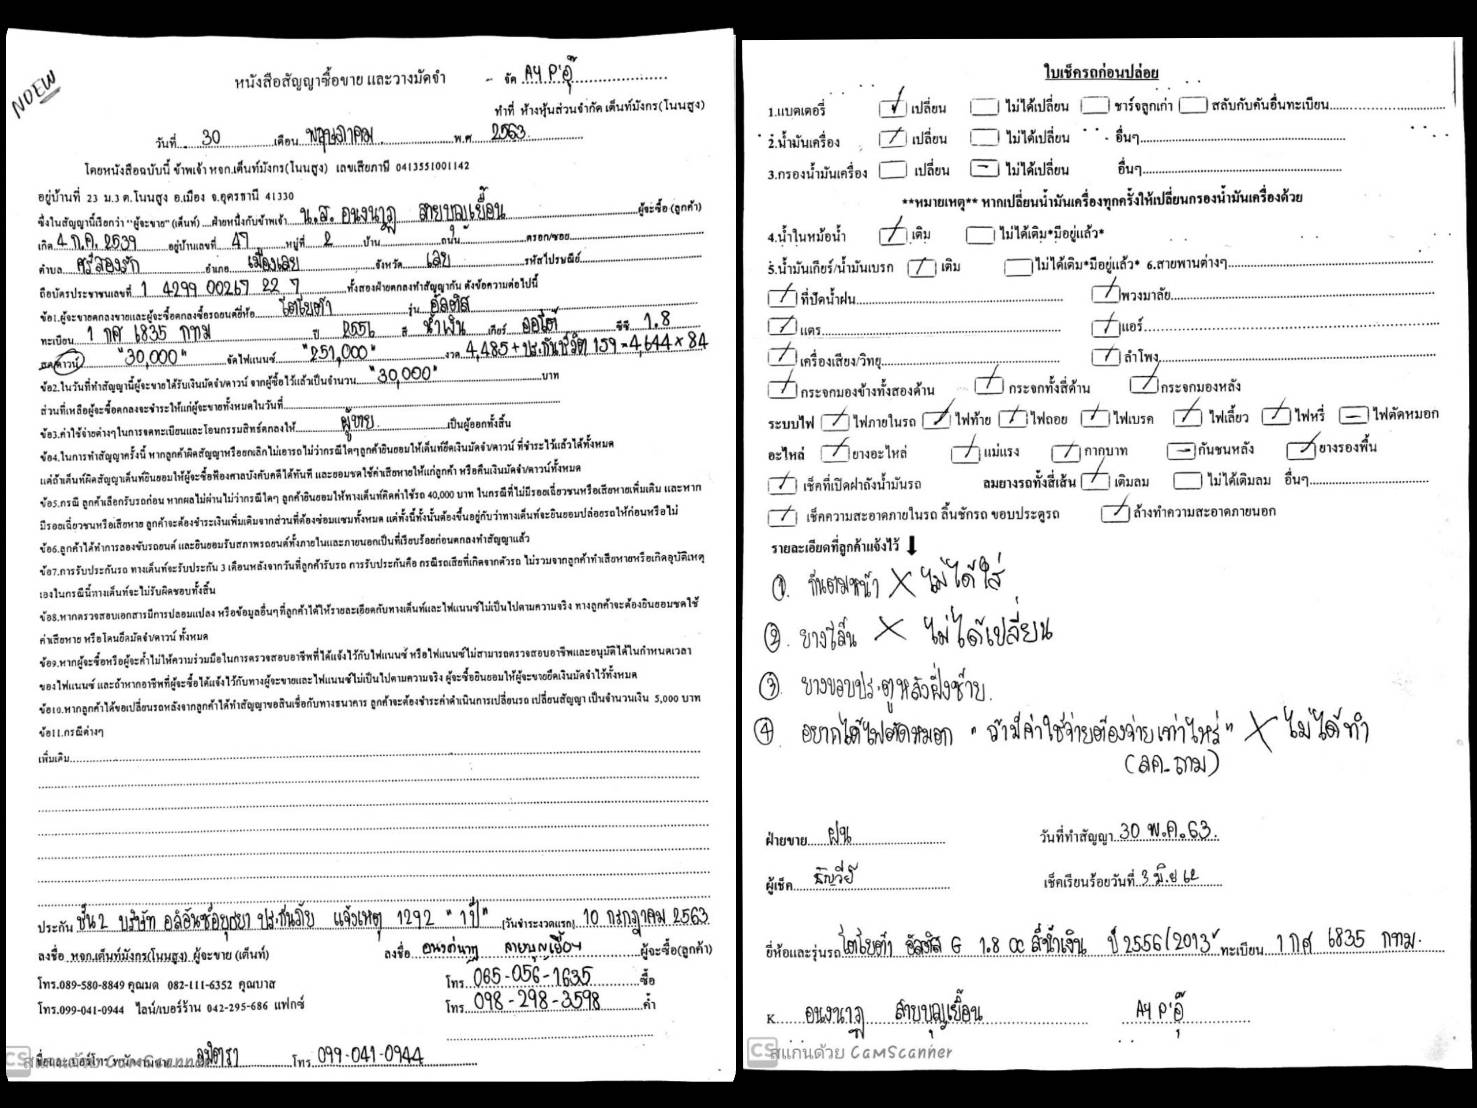 NDEW
หนังสือสัญญาซื้อขาย และวางมัดจำ - จัด AY P'อุ๊
ทำที่ ห้างหุ้นส่วนจำกัด เต็นท์มังกร(โนนสูง)
วันที่ 30 เดือน พฤษภาคม พ.ศ. 2563
โดยหนังสือฉบับนี้ ข้าพเจ้า หจก.เต็นท์มังกร(โนนสูง) เลขเสียภาษี 0413551001142
อยู่บ้านที่ 23 ม.3 ต.โนนสูง อ.เมือง จ.อุดรธานี 41330
ซึ่งในสัญญานี้เรียกว่า "ผู้จะขาย" (เต็นท์) ฝ่ายหนึ่งกับข้าพเจ้า น.ส. อนงนาฏ สายบุญเยื้อน ผู้จะซื้อ (ลูกค้า)
เกิด 4 ก.ค. 2539 อยู่บ้านเลขที่ 47 หมู่ที่ 2 บ้าน ถนน ตรอก/ซอย
ตำบล ศรีสองรัก อำเภอ เมืองเลย จังหวัด เลย รหัสไปรษณีย์
ถือบัตรประชาชนเลขที่ 1 4299 00267 22 7 ทั้งสองฝ่ายตกลงทำสัญญากัน ดังข้อความต่อไปนี้
ข้อ1.ผู้จะขายตกลงขายและผู้จะซื้อตกลงซื้อรถยนต์ยี่ห้อ โตโยต้า รุ่น อัลติส
ทะเบียน 1 กศ 6835 กทม ปี 2556 สี น้ำเงิน เกียร์ ออโต้ ซีซี 1.8
สด/ดาวน์ "30,000" จัดไฟแนนซ์ "251,000" งวด 4,485 + ประกันชีวิต 159 = 4,644 x 84
ข้อ2.ในวันที่ทำสัญญานี้ผู้จะขายได้รับเงินมัดจำ/ดาวน์ จากผู้ซื้อไว้แล้วเป็นจำนวน "30,000" บาท
ส่วนที่เหลือผู้จะซื้อตกลงจะชำระให้แก่ผู้จะขายทั้งหมดในวันที่
ข้อ3.ค่าใช้จ่ายต่างๆในการจดทะเบียนและโอนกรรมสิทธิ์ตกลงให้ ผู้ขาย เป็นผู้ออกทั้งสิ้น
ข้อ4.ในการทำสัญญาครั้งนี้ หากลูกค้าผิดสัญญาหรือยกเลิกไม่เอารถไม่ว่ากรณีใดๆลูกค้ายินยอมให้เต็นท์ยึดเงินมัดจำ/ดาวน์ ที่ชำระไว้แล้วได้ทั้งหมด
แต่ถ้าเต็นท์ผิดสัญญาเต็นท์ยินยอมให้ผู้จะซื้อฟ้องศาลบังคับคดีได้ทันที และยอมชดใช้ค่าเสียหายให้แก่ลูกค้า หรือคืนเงินมัดจำ/ดาวน์ทั้งหมด
ข้อ5.กรณี ลูกค้าเลือกรับรถก่อน หากผลไม่ผ่านไม่ว่ากรณีใดๆ ลูกค้ายินยอมให้ทางเต็นท์คิดค่าใช้รถ 40,000 บาท ในกรณีที่ไม่มีรอยเฉี่ยวชนหรือเสียหายเพิ่มเติม และหาก
มีรอยเฉี่ยวชนหรือเสียหาย ลูกค้าจะต้องชำระเงินเพิ่มเติมจากส่วนที่ต้องซ่อมแซมทั้งหมด แต่ทั้งนี้ทั้งนั้นต้องขึ้นอยู่กับว่าทางเต็นท์จะยินยอมปล่อยรถให้ก่อนหรือไม่
ข้อ6.ลูกค้าได้ทำการลองขับรถยนต์ และยินยอมรับสภาพรถยนต์ทั้งภายในและภายนอกเป็นที่เรียบร้อยก่อนตกลงทำสัญญาแล้ว
ข้อ7.การรับประกันรถ ทางเต็นท์จะรับประกัน 3 เดือนหลังจากวันที่ลูกค้ารับรถ การรับประกันคือ กรณีรถเสียที่เกิดจากตัวรถ ไม่รวมจากลูกค้าทำเสียหายหรือเกิดอุบัติเหตุ
เองในกรณีนี้ทางเต็นท์จะไม่รับผิดชอบทั้งสิ้น
ข้อ8.หากตรวจสอบเอกสารมีการปลอมแปลง หรือข้อมูลอื่นๆที่ลูกค้าได้ให้รายละเอียดกับทางเต็นท์และไฟแนนซ์ไม่เป็นไปตามความจริง ทางลูกค้าจะต้องยินยอมชดใช้
ค่าเสียหาย หรือโดนยึดมัดจำ/ดาวน์ ทั้งหมด
ข้อ9.หากผู้จะซื้อหรือผู้จะค้ำไม่ให้ความร่วมมือในการตรวจสอบอาชีพที่ได้แจ้งไว้กับไฟแนนซ์ หรือไฟแนนซ์ไม่สามารถตรวจสอบอาชีพและอนุมัติได้ในกำหนดเวลา
ของไฟแนนซ์ และถ้าหากอาชีพที่ผู้จะซื้อได้แจ้งไว้กับทางผู้จะขายและไฟแนนซ์ไม่เป็นไปตามความจริง ผู้จะซื้อยินยอมให้ผู้จะขายยึดเงินมัดจำไว้ทั้งหมด
ข้อ10.หากลูกค้าได้ขอเปลี่ยนรถหลังจากลูกค้าได้ทำสัญญาขอสินเชื่อกับทางธนาคาร ลูกค้าจะต้องชำระค่าดำเนินการเปลี่ยนรถ เปลี่ยนสัญญา เป็นจำนวนเงิน 5,000 บาท
ข้อ11.กรณีต่างๆ
เพิ่มเติม
ประกัน ชั้น 2 บริษัท อลิอันซ์อยุธยา ประกันภัย แจ้งเหตุ 1292 "1ปี" (วันชำระงวดแรก) 10 กรกฎาคม 2563
ลงชื่อ หจก.เต็นท์มังกร(โนนสูง) ผู้จะขาย (เต็นท์) ลงชื่อ อนงค์นาฏ สายบุญเยื้อน ผู้จะซื้อ(ลูกค้า)
โทร.089-580-8849 คุณมด 082-111-6352 คุณบาส โทร. 065-056-1635 ซื้อ
โทร.099-041-0944 ไลน์/เบอร์ร้าน 042-295-686 แฟกซ์ โทร. 098-298-3598 ค้ำ
ชื่อและเบอร์โทร พนักงานขาย โทร. 099-041-0944
CS สแกนด้วย CamScanner
ใบเช็ครถก่อนปล่อย
1.แบตเตอรี่ เปลี่ยน ไม่ได้เปลี่ยน ชาร์จลูกเก่า สลับกับคันอื่นทะเบียน
2.น้ำมันเครื่อง เปลี่ยน ไม่ได้เปลี่ยน อื่นๆ
3.กรองน้ำมันเครื่อง เปลี่ยน ไม่ได้เปลี่ยน อื่นๆ
**หมายเหตุ** หากเปลี่ยนน้ำมันเครื่องทุกครั้งให้เปลี่ยนกรองน้ำมันเครื่องด้วย
4.น้ำในหม้อน้ำ เติม ไม่ได้เติม*มีอยู่แล้ว*
5.น้ำมันเกียร์/น้ำมันเบรก เติม ไม่ได้เติม*มีอยู่แล้ว* 6.สายพานต่างๆ
ที่ปัดน้ำฝน พวงมาลัย
แตร แอร์
เครื่องเสียง/วิทยุ ลำโพง
กระจกมองข้างทั้งสองด้าน กระจกทั้งสี่ด้าน กระจกมองหลัง
ระบบไฟ ไฟภายในรถ ไฟท้าย ไฟถอย ไฟเบรค ไฟเลี้ยว ไฟหรี่ ไฟตัดหมอก
อะไหล่ ยางอะไหล่ แม่แรง กากบาท กันชนหลัง ยางรองพื้น
เช็คที่เปิดฝาถังน้ำมันรถ ลมยางรถทั้งสี่เส้น เติมลม ไม่ได้เติมลม อื่นๆ
เช็คความสะอาดภายในรถ ลิ้นชักรถ ขอบประตูรถ ล้างทำความสะอาดภายนอก
รายละเอียดที่ลูกค้าแจ้งไว้ ⬇
① กันลามหน้า X ไม่ได้ใส่
② ยางไล้น X ไม่ได้เปลี่ยน
③ ยางขอบประตูหลังฝั่งซ้าย.
④ อยากได้ไฟตัดหมอก "ถ้ามีค่าใช้จ่ายต้องจ่ายเท่าไหร่" X ไม่ได้ทำ
(ลค.ถาม)
ฝ่ายขาย ฝน วันที่ทำสัญญา 30 พ.ค. 63.
ผู้เช็ค เช็คเรียบร้อยวันที่ 3 มิ.ย 62
ยี่ห้อและรุ่นรถ โตโยต้า อัลติส G 1.8 cc สีน้ำเงิน ปี 2556/2013 ทะเบียน 1 กศ 6835 กทม.
K. อนงนาฏ สายบุญเยื้อน AY P'อุ๊
CS สแกนด้วย CamScanner